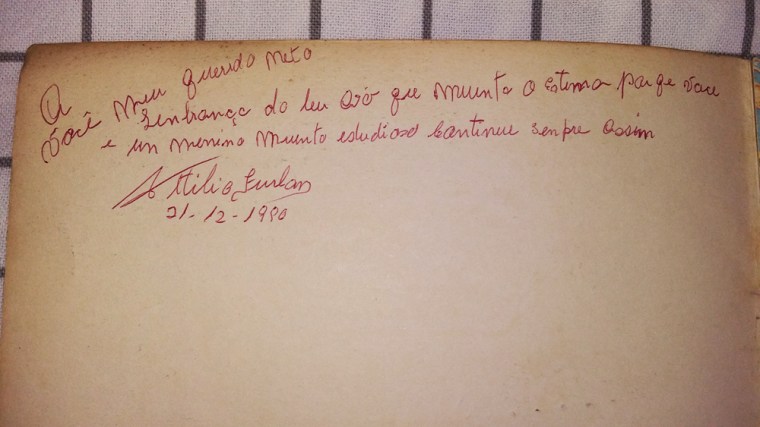 A
Você Meu querido Neto
Lenbrança do teu avó que Muinto o estima porqe voce
e un menino Muinto estudioso Continue senpre assim
Attilio Furlan
21-12-1990